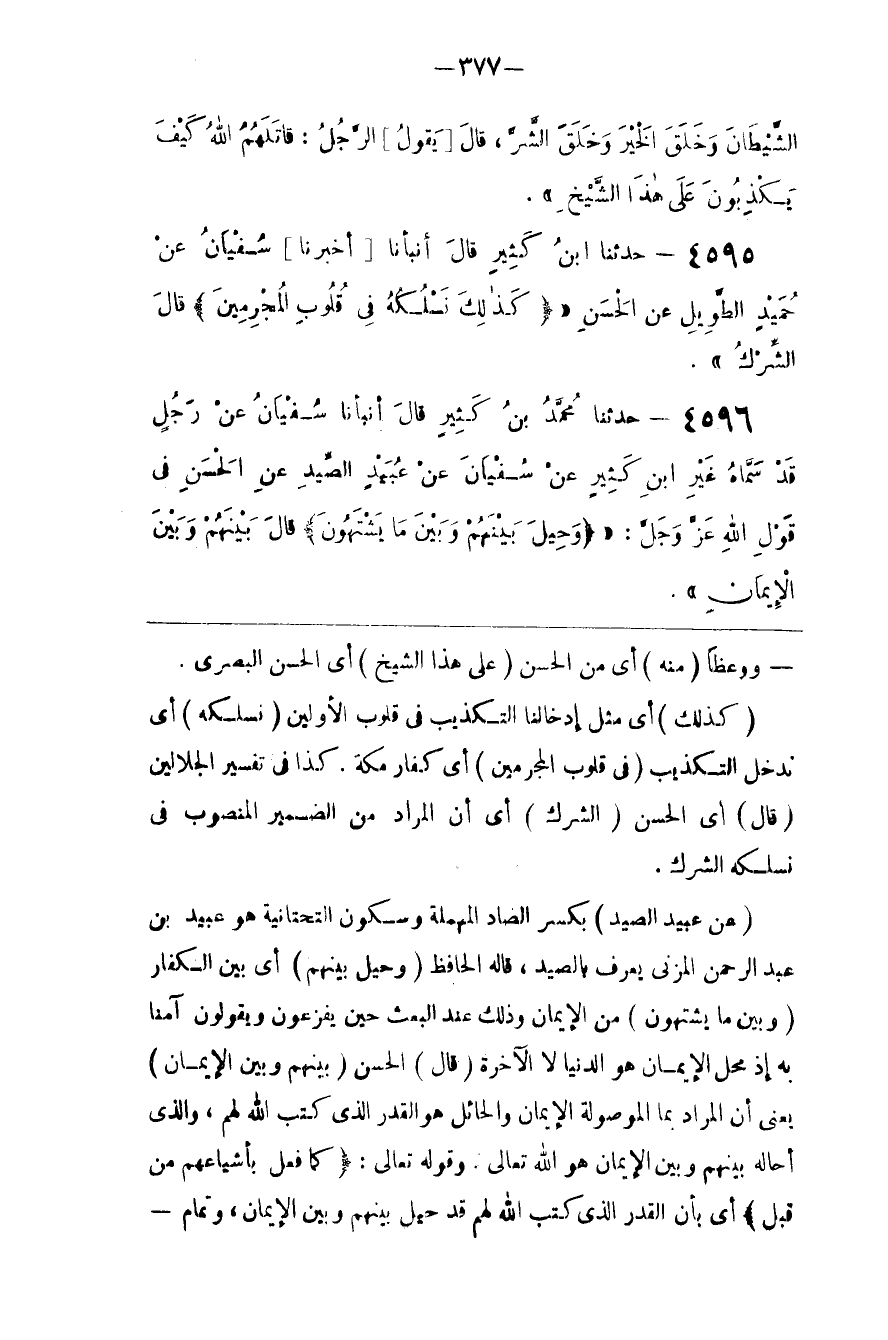 —٣٧٧—
الشَّيْطَانَ وَخَلَقَ الْخَيْرَ وَخَلَقَ الشَّرَّ ، قالَ [ يَقولُ ] الرَّجُلُ : قاتَلَهُمُ اللهُ كَيْفَ
يَكْذِبُونَ عَلَى هٰذَا الشَّيْخِ » .
٤٥٩٥ — حدثنا ابنُ كَثِيرٍ قالَ أنبأنا [ أخبرنا ] سُفْيَانُ عنْ
حُمَيْدٍ الطَّوِيلِ عن الْحَسَنِ « ﴿ كَذٰلِكَ نَسْلُكُهُ فِى قُلُوبِ الْمُجْرِمِينَ ﴾ قالَ
الشِّرْكُ » .
٤٥٩٦ — حدثنا مُحمَّدُ بنُ كَثِيرٍ قالَ أنبأنا سُفْيَانُ عنْ رَجُلٍ
قَدْ سَمَّاهُ غَيْرِ ابنِ كَثِيرٍ عنْ سُفْيَانَ عنْ عُبَيْدٍ الصِّيدِ عنِ الْحَسَنِ فى
قَوْلِ اللهِ عَزَّ وَجَلَّ : « ﴿وَحِيلَ بَيْنَهُمْ وَبَيْنَ مَا يَشْتَهُونَ﴾ قالَ بَيْنَهُمْ وَبَيْنَ
الْإِيمَانِ » .
— ووعظاً ( منه ) أى من الحسن ( على هذا الشيخ ) أى الحسن البصرى .
( كذلك ) أى مثل إدخالنا التكذيب فى قلوب الأولين ( نسلكه ) أى
ندخل التكذيب ( فى قلوب المجرمين ) أى كفار مكة . كذا فى تفسير الجلالين
( قال ) أى الحسن ( الشرك ) أى أن المراد من الضمير المنصوب فى
نسلكه الشرك .
( عن عبيد الصيد ) بكسر الصاد المهملة وسكون التحتانية هو عبيد بن
عبد الرحمن المزنى يعرف بالصيد ، قاله الحافظ ( وحيل بينهم ) أى بين الكفار
( وبين ما يشتهون ) من الإيمان وذلك عند البعث حين يفزعون ويقولون آمنا
به إذ محل الإيمان هو الدنيا لا الآخرة ( قال ) الحسن ( بينهم وبين الإيمان )
يعنى أن المراد بما الموصولة الإيمان والحائل هو القدر الذى كتب الله لهم ، والذى
أحاله بينهم وبين الإيمان هو الله تعالى . وقوله تعالى : ﴿ كما فعل بأشياعهم من
قبل ﴾ أى بأن القدر الذى كتب الله لهم قد حيل بينهم وبين الإيمان ، وتمام —